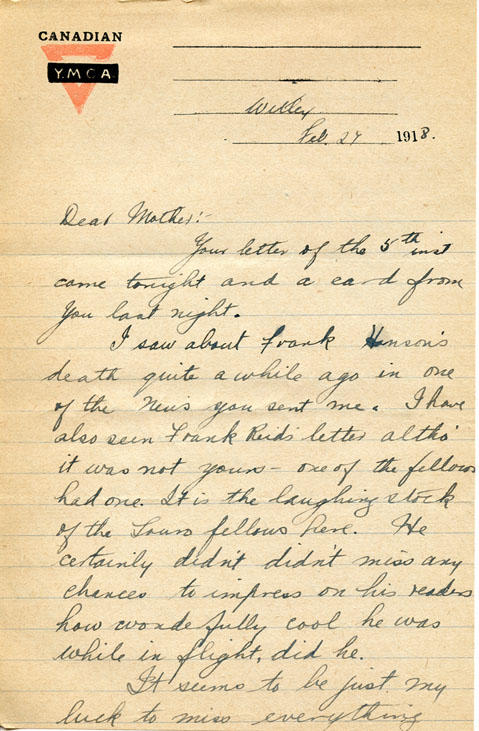 CANADIAN
Y.M.C.A.
Witley
Feb. 27 1918.
Dear Mother:-
Your letter of the 5th inst
came tonight and a card from
you last night.
I saw about Frank Hanson's
death quite a while ago in one
of the News you sent me. I have
also seen Frank Reid's letter altho'
it was not yours - one of the fellows
had one. It is the laughing stock
of the Town fellows here. He
certainly didn't didn't miss any
chances to impress on his readers
how wonderfully cool he was
while in flight, did he.
It seems to be just my
luck to miss everything